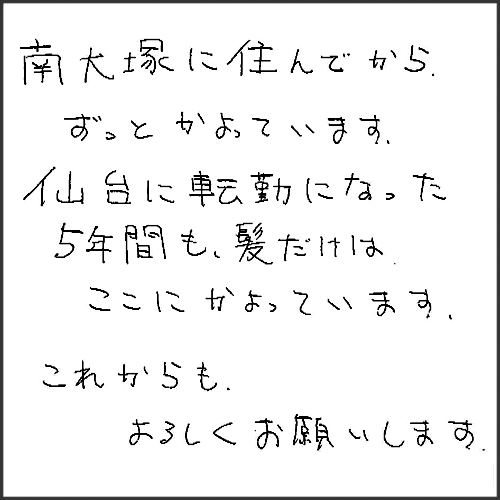 南大塚に住んでから、
ずっとかよっています。
仙台に転勤になった
5年間も、髪だけは
ここにかよっています。
これからも、
よろしくお願いします。